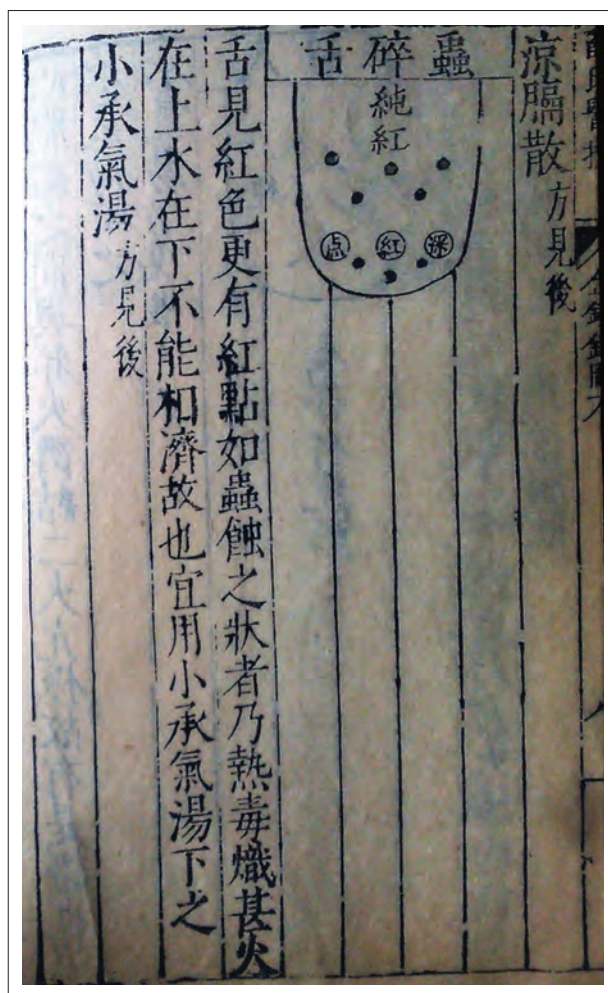 涼膈散方見後
蟲碎舌
純紅
深紅点
舌見紅色更有紅點如蟲蝕之狀者乃熱毒熾甚火
在上水在下不能相濟故也宜用小承氣湯下之
小承氣湯方見後